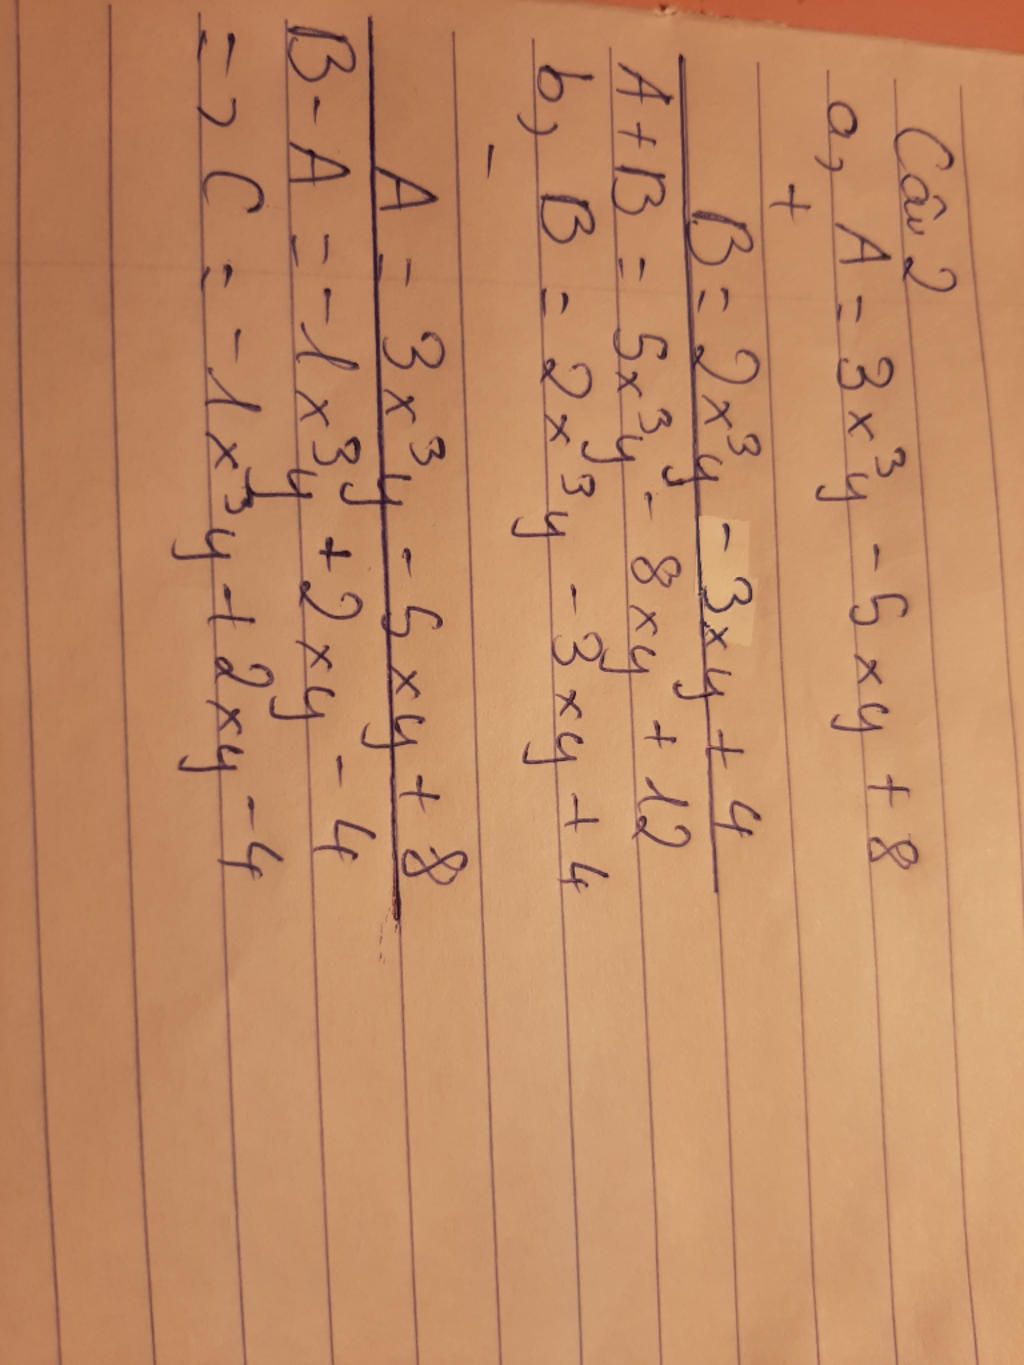 Câu 2
a, A = 3x³y - 5xy + 8
+
B = 2x³y - 3xy + 4
A+B = 5x³y - 8xy + 12
b, B = 2x³y - 3xy + 4
-
A = 3x³y - 5xy + 8
B-A = -1x³y + 2xy - 4
=> C = -1x³y + 2xy - 4